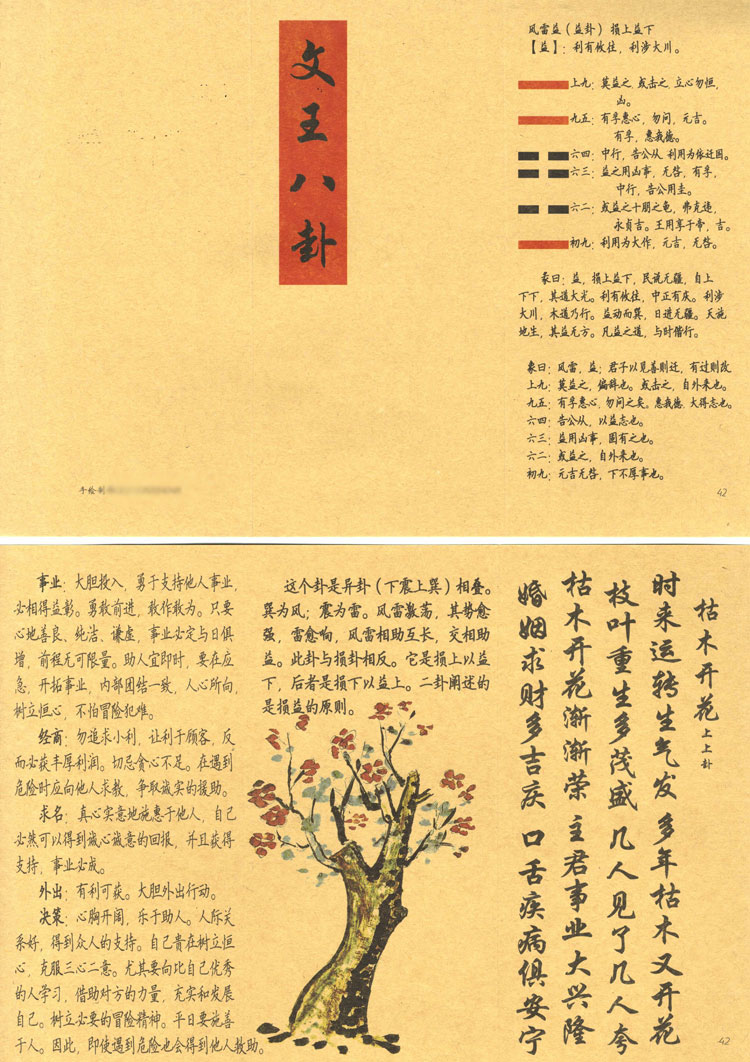 文王八卦
风雷益(益卦)损上益下
【益】:利有攸往,利涉大川。
上九:莫益之,或击之,立心勿恒,
凶。
九五:有孚惠心,勿问,元吉。
有孚,惠我德。
六四:中行,告公从,利用为依迁国。
六三:益之用凶事,无咎,有孚,
中行,告公用圭。
六二:或益之十朋之龟,弗克违,
永贞吉。王用享于帝,吉。
初九:利用为大作,元吉,无咎。
彖曰:益,损上益下,民说无疆,自上
下下,其道大光。利有攸往,中正有庆。利涉
大川,木道乃行。益动而巽,日进无疆。天施
地生,其益无方。凡益之道,与时偕行。
象曰:风雷,益;君子以见善则迁,有过则改
上九:莫益之,偏辞也。或击之,自外来也。
九五:有孚惠心,勿问之矣。惠我德,大得志也。
六四:告公从,以益志也。
六三:益用凶事,固有之也。
六二:或益之,自外来也。
初九:元吉无咎,下不厚事也。
手绘制
42
枯木开花 上上卦
时来运转生气发 多年枯木又开花
枝叶重生多茂盛 几人见了几人夸
枯木开花渐渐荣 主君事业大兴隆
婚姻求财多吉庆 口舌疾病俱安宁
这个卦是异卦(下震上巽)相叠。
巽为风;震为雷。风雷激荡,其势愈
强,雷愈响,风雷相助互长,交相助
益。此卦与损卦相反。它是损上以益
下,后者是损下以益上。二卦阐述的
是损益的原则。
事业:大胆投入,勇于支持他人事业,
必相得益彰。勇敢前进,敢作敢为。只要
心地善良、纯洁、谦虚,事业必定与日俱
增,前程无可限量。助人宜即时,要在应
急,开拓事业,内部团结一致,人心所向,
树立恒心,不怕冒险犯难。
经商:勿追求小利,让利于顾客,反
而必获丰厚利润。切忌贪心不足。在遇到
危险时应向他人求教,争取诚实的援助。
求名:真心实意地施惠于他人,自己
必然可以得到诚心诚意的回报,并且获得
支持,事业必成。
外出:有利可获。大胆外出行动。
决策:心胸开阔,乐于助人。人际关
系好,得到众人的支持。自己贵在树立恒
心,克服三心二意。尤其要向比自己优秀
的人学习,借助对方的力量,充实和发展
自己。树立必要的冒险精神。平日要施善
于人。因此,即使遇到危险也会得到他人救助。
42